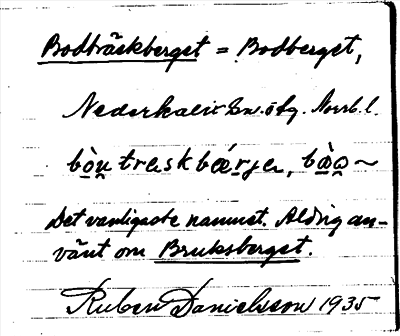 Bodträskberget = Bodberget,
Nederkalix sn. ö fg. Norrb. l.
bò̱u̯ trɛskbǽrjɛ, bò̱o̯ ~
Det vanligaste namnet. Aldrig an-
vänt om Bruksberget.
Ruben Danielsson 1935